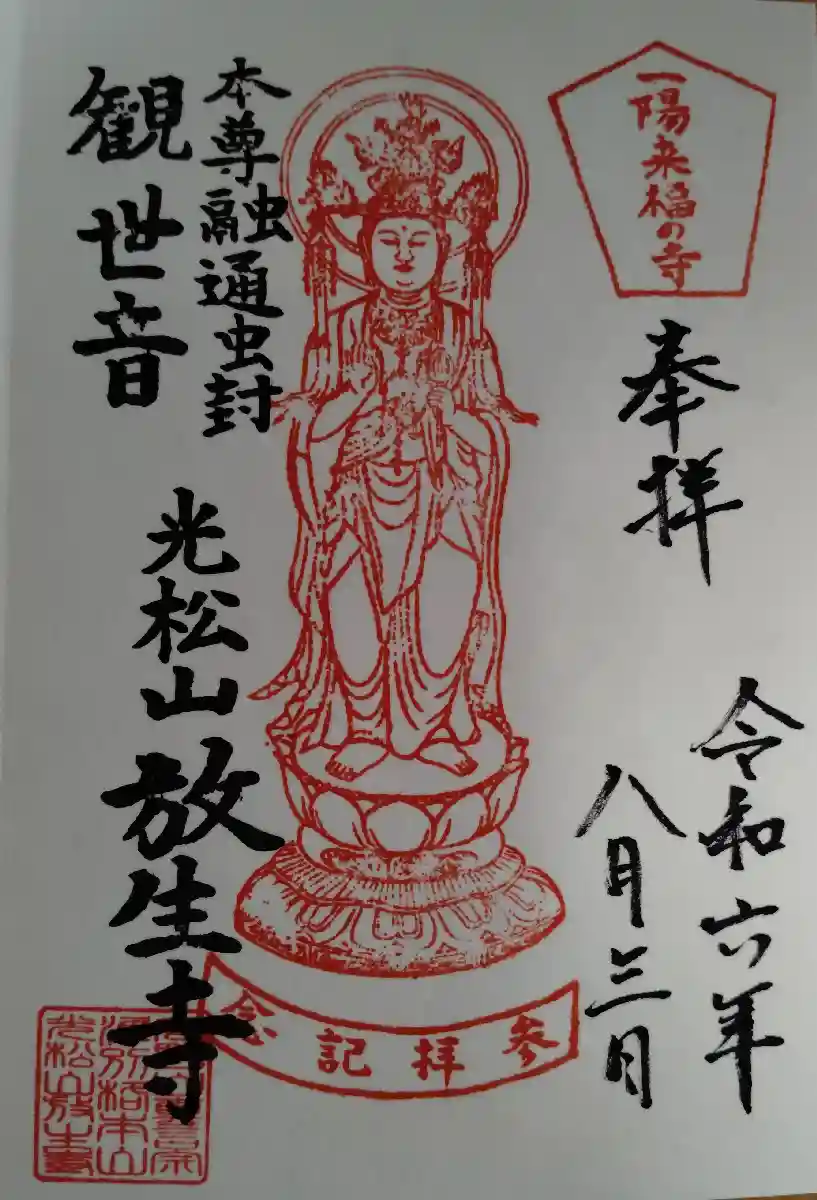 一陽来福の寺
奉拝
令和六年
八月三日
本尊融通虫封
観世音
光松山放生寺
参拝記念
別格本山
光松山放生寺